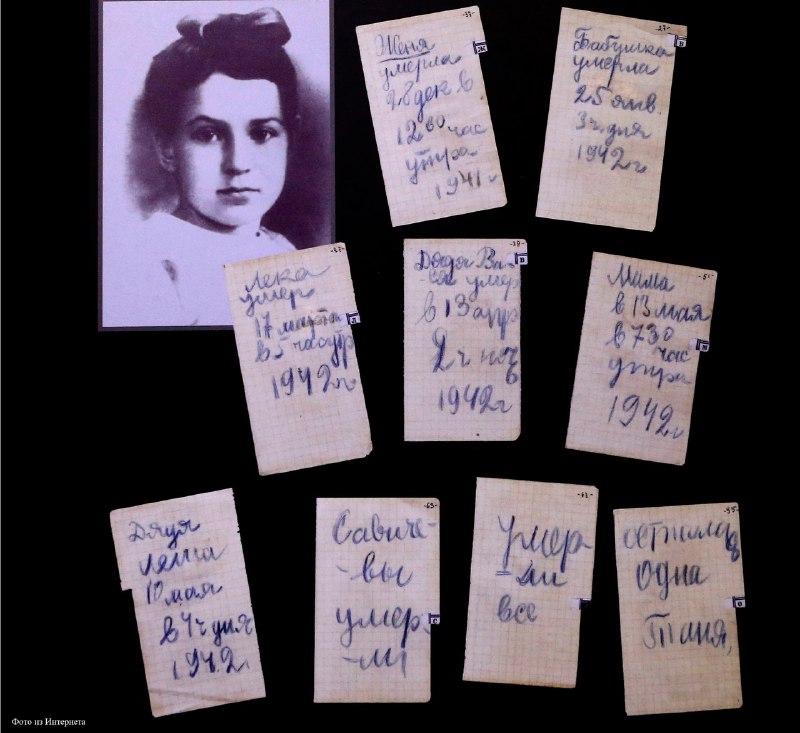 Женя
умерла
28 дек в
12 00 час
утра
1941 г
Ж
-27-
Бабушка
умерла
25 янв.
3 ч. дня
1942 г
Лека
умер
17 марта
в 5 час утр
1942 г
Л
Дядя Ва-
ся умер
в 13 апр
2 ч ноч
в
1942 г
В
Мама
в 13 мая
в 7 30
час
утра
1942 г
М
Дядя
Леша
10 мая
в 4 ч дня
1942
Савиче-
-вы
умер-
-ли
С
умер
=ли
все
осталась
одна
Таня.
О
Фото из Интернета